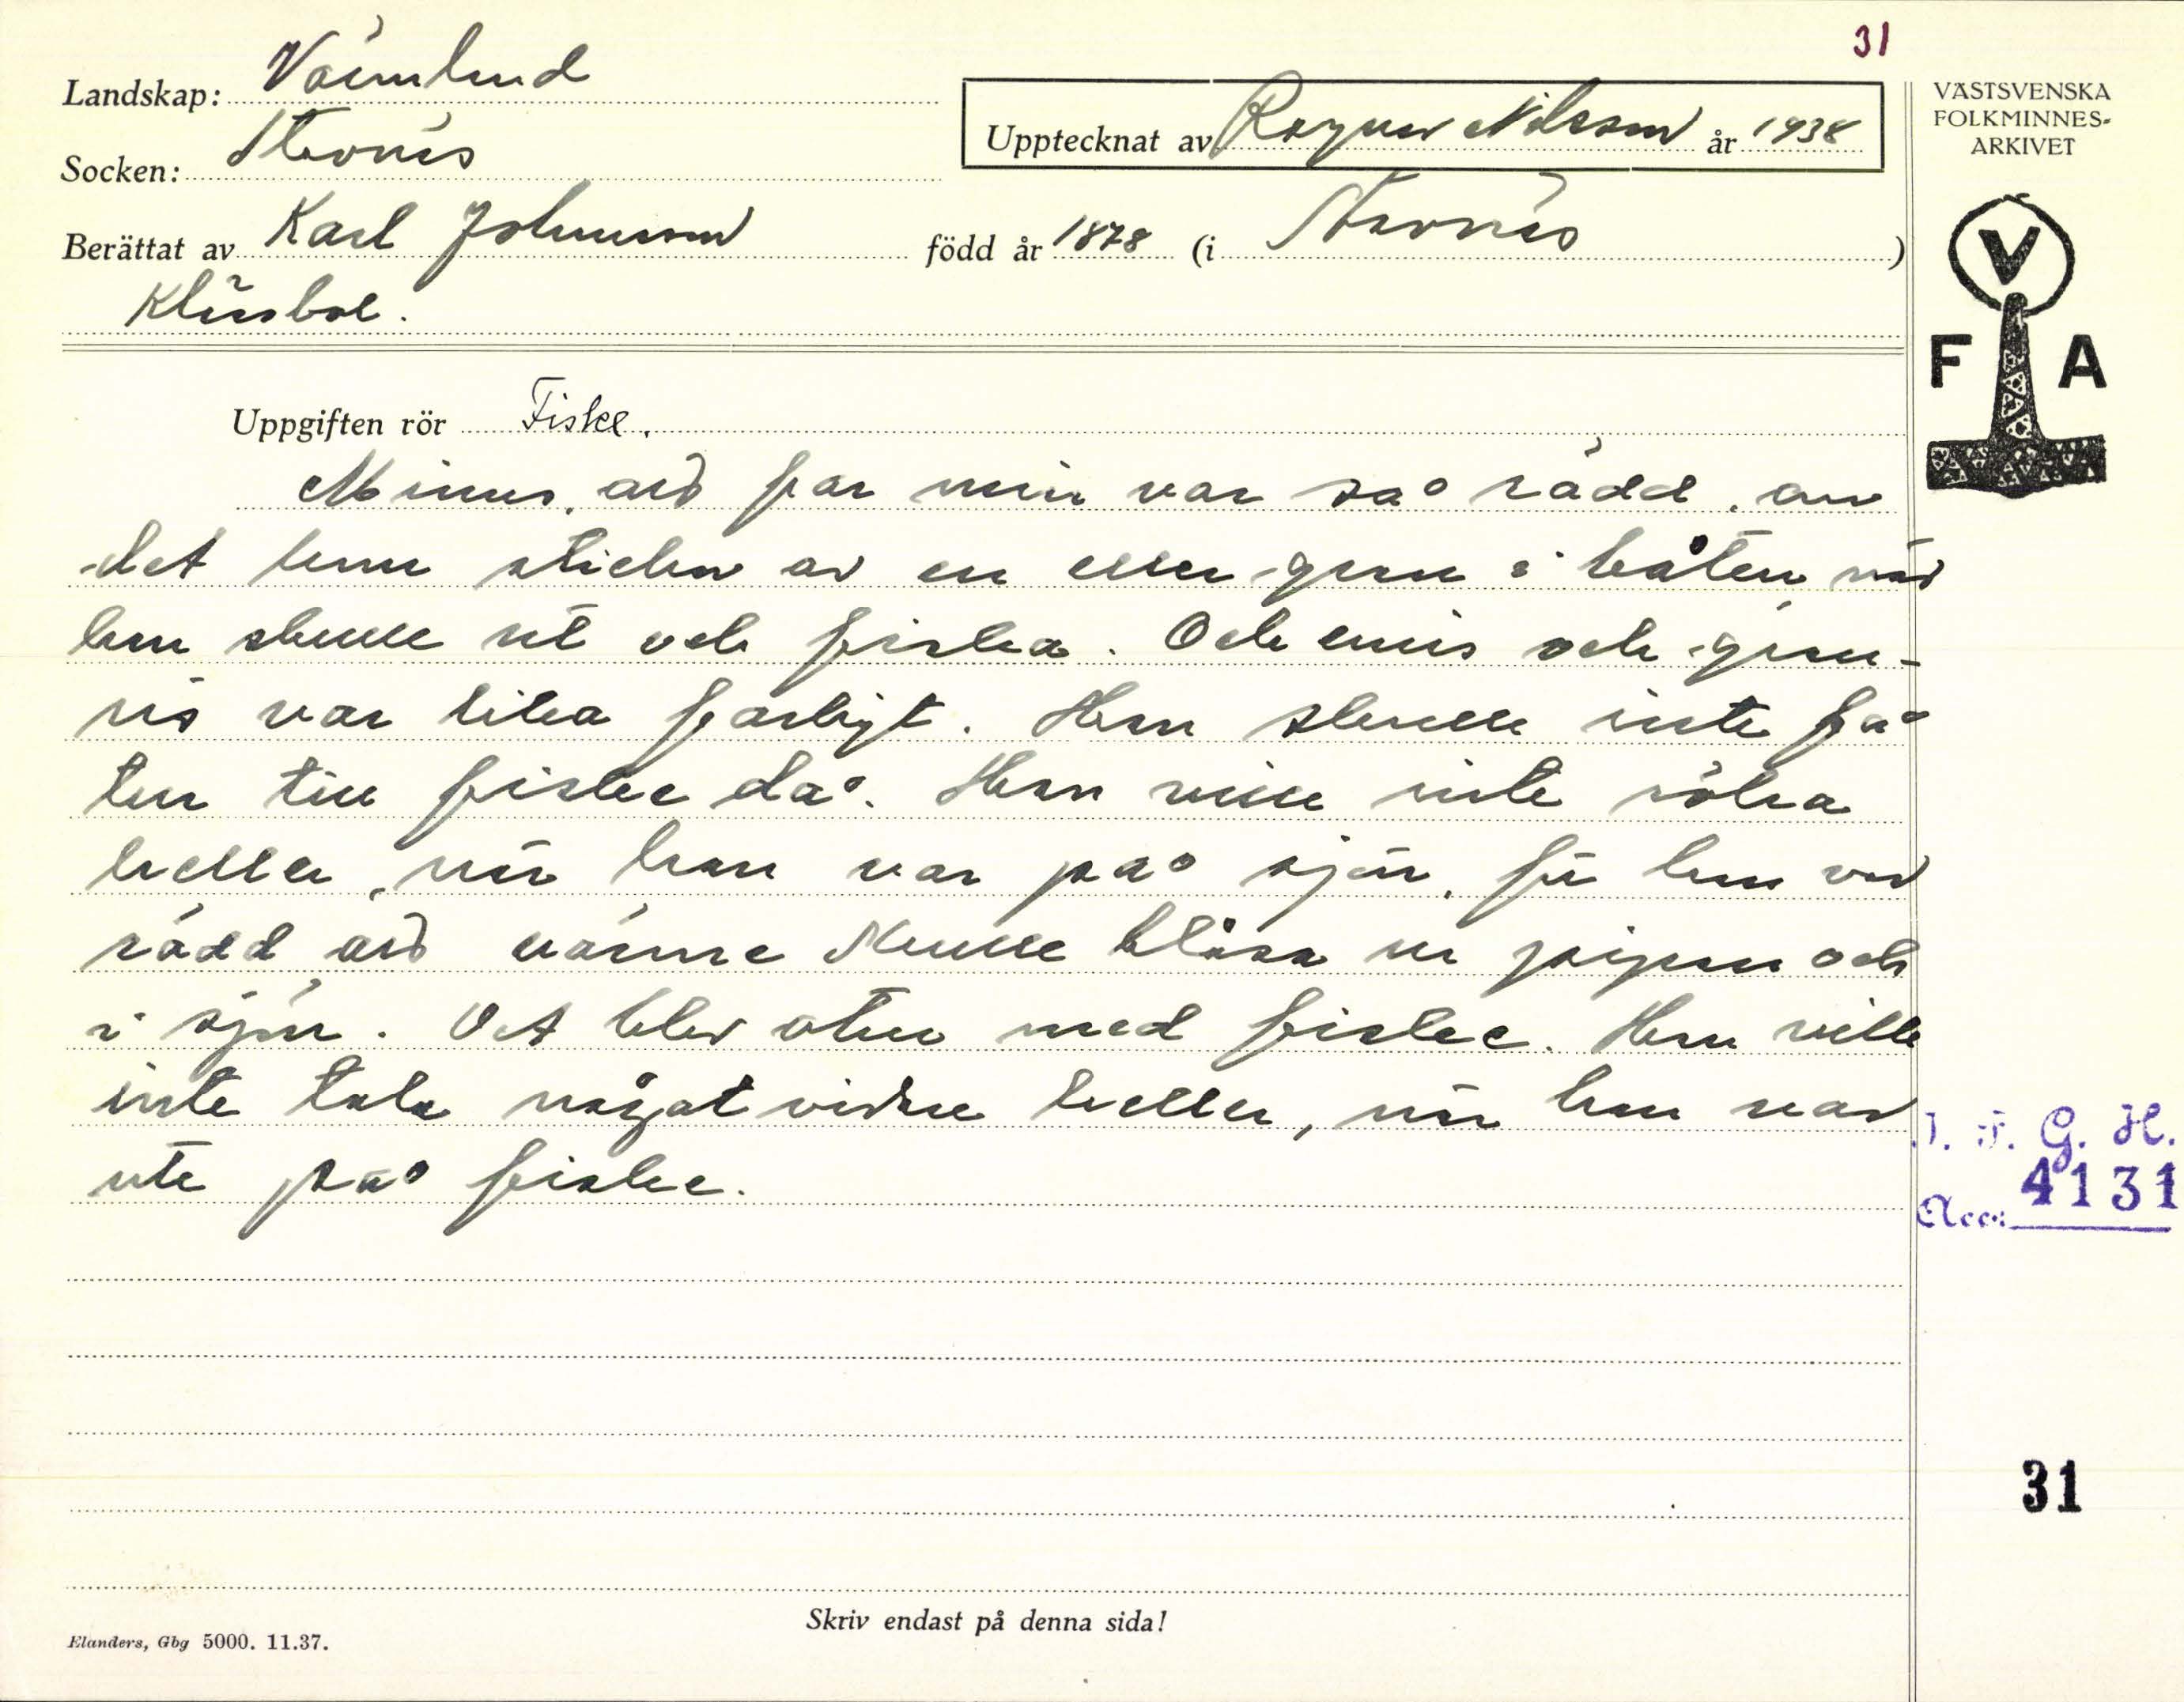 31
Landskap: Värmland
Socken: Stavnäs
Upptecknat av Ragnar Nilsson år 1938
VÄSTSVENSKA
FOLKMINNES-
ARKIVET
Berättat av Karl Johansson född år 1878 (i Stavnäs)
Klässbol.
V
F A
Uppgiften rör Fiske.
Minns, att far min var så rädd, om
det fanns stickor av en eller gran i båten när
han skulle ut och fiska. Och enris och gran-
ris var lika farligt. Han skulle inte få
tur till fiske då. Han ville inte röka
heller, när han var på sjön, för han var
rädd att värme skulle blåsa ur pipan och
i sjön. Det blev otur med fiske. Han ville
inte tala något vidare heller, när han var
ute på fiske.
I. F. G. H.
Acc: 4131
31
Skriv endast på denna sida!
Elanders, Gbg 5000. 11.37.